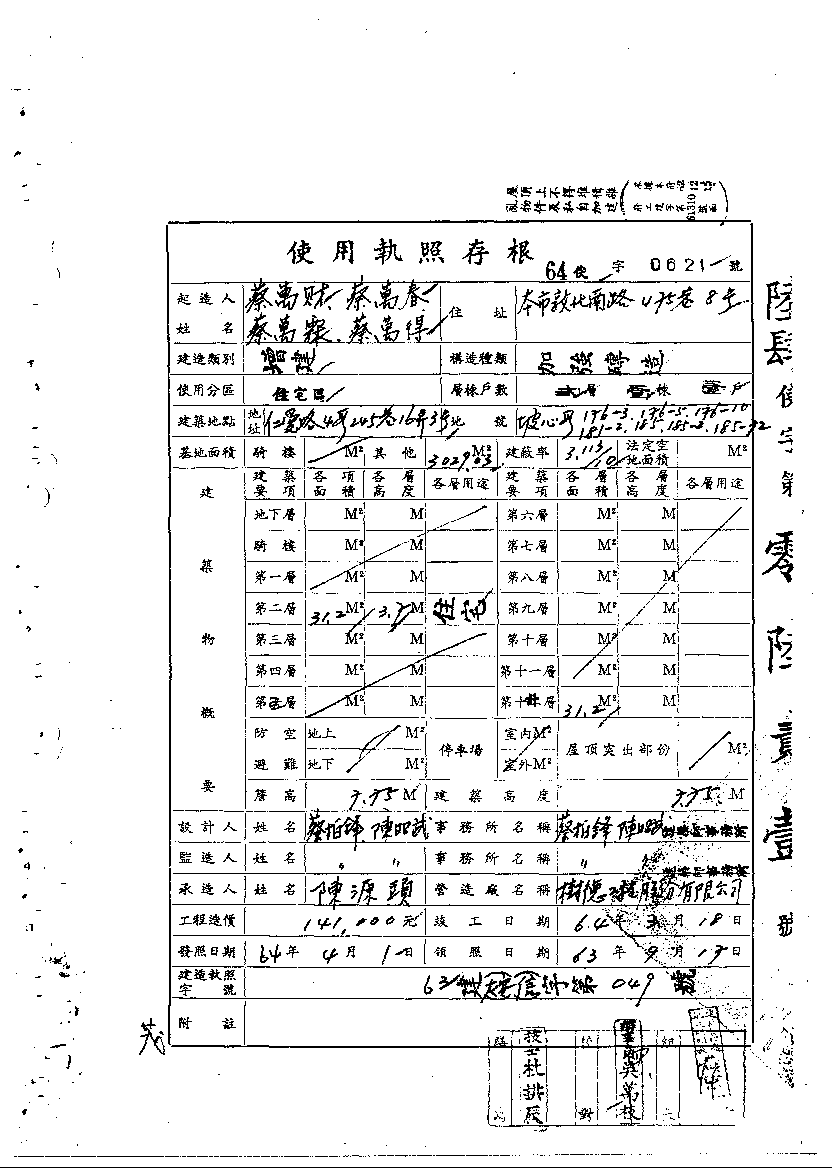 屋頂上不得堆積雜
亂物件及私自加建
使用執照存根
64使 字 0621 號
起造人
姓名
蔡萬財、蔡萬春
蔡萬霖、蔡萬得
住址
本市敦化南路475巷8号
建造類別 增建 構造種類 加強磚造
使用分區 住宅區 層棟戶數 層 棟 戶
建築地點 地址 仁愛路4段245巷16弄3号 地號 坡心段 176-3.176-5.176-10
181-2.185.185-2.185-32
基地面積 騎樓 M² 其他 M² 建蔽率 法定空地面積 M²
建築物概要
建築要項 各項面積 各層高度 各層用途 建築要項 各項面積 各層高度 各層用途
地下層 M² M 第六層 M² M
騎樓 M² M 第七層 M² M
第一層 M² M 第八層 M² M
第二層 31.2 M² 3.7 M 住宅 第九層 M² M
第三層 M² M 第十層 M² M
第四層 M² M 第十一層 M² M
第五層 M² M 31.2 M² M
防空避難 地上 M² 停車場 室內M² 屋頂突出部份 M²
地下 M² 室外M²
簷高 7.75 M 建築高度 7.75 M
設計人 姓名 蔡柏鋒 陳昭武 事務所名稱 蔡柏鋒 陳昭武
監造人 姓名 〃 〃 事務所名稱 〃 〃
承造人 姓名 陳源頭 營造廠名稱 樹德工程股份有限公司
工程造價 141,000元 竣工日期 64年3月18日
發照日期 64年4月1日 領照日期 63年9月17日
建造執照字號 63 049 號
附註
陸肆使字第零陸貳壹號